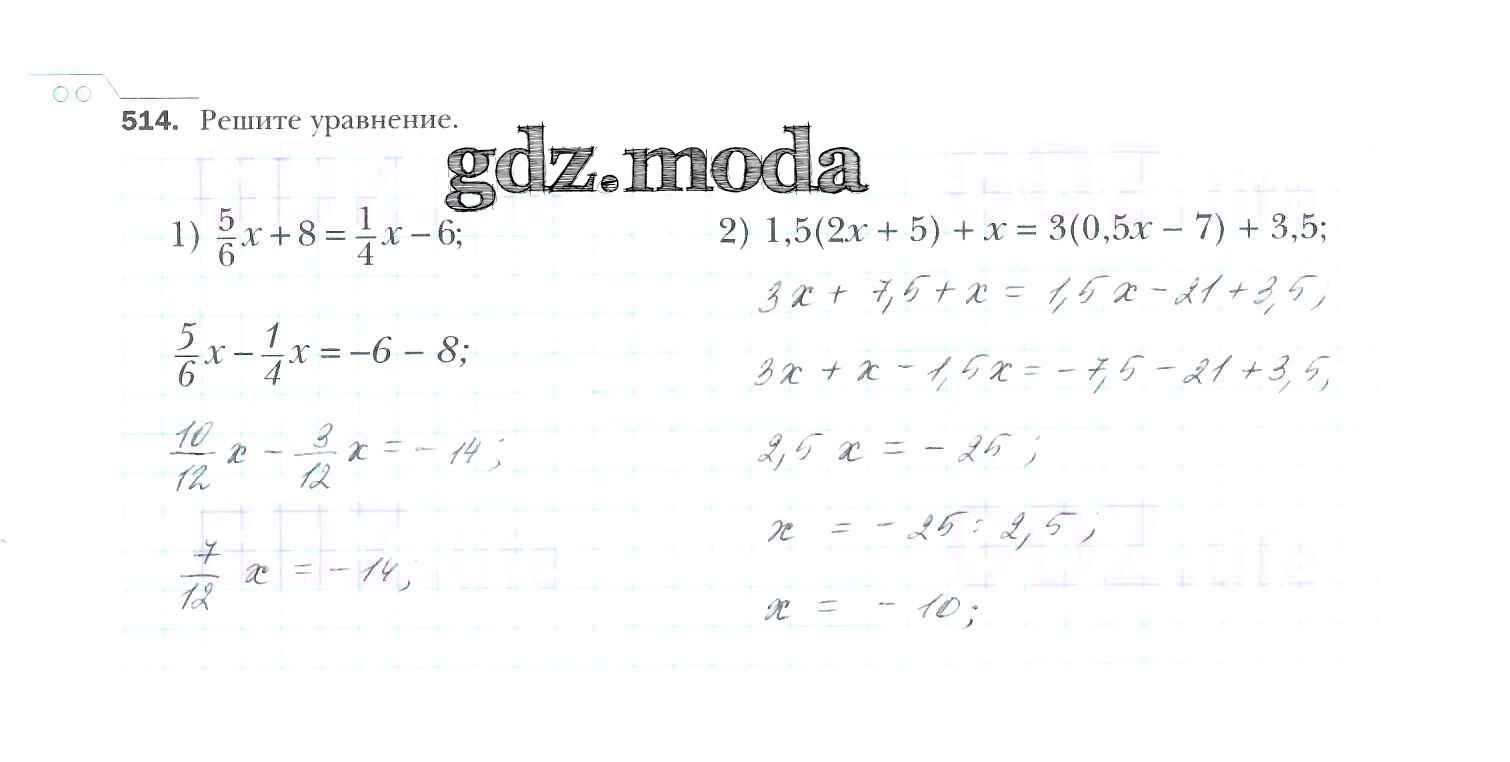 514. Решите уравнение.
gdz.moda
1) 5/6 x + 8 = 1/4 x – 6;
5/6 x – 1/4 x = –6 – 8;
10/12 x – 3/12 x = – 14;
7/12 x = – 14;
2) 1,5(2x + 5) + x = 3(0,5x – 7) + 3,5;
3x + 7,5 + x = 1,5x – 21 + 3,5;
3x + x – 1,5x = – 7,5 – 21 + 3,5;
2,5 x = – 25;
x = – 25 : 2,5;
x = – 10;